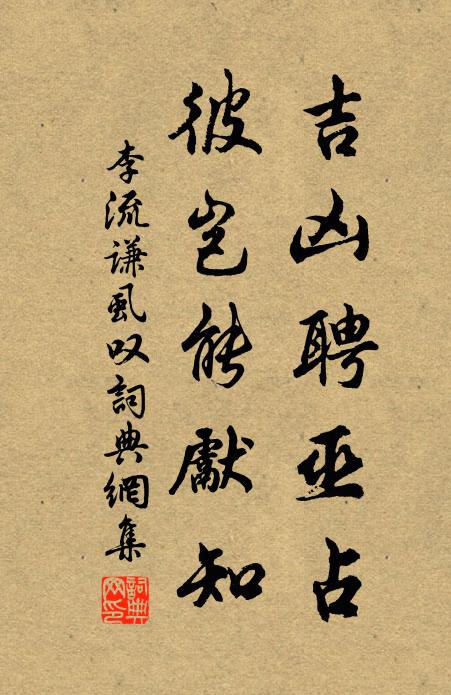 吉凶聘巫占
彼岂能獻知
李流谦虱叹詞典網集
詞典网印